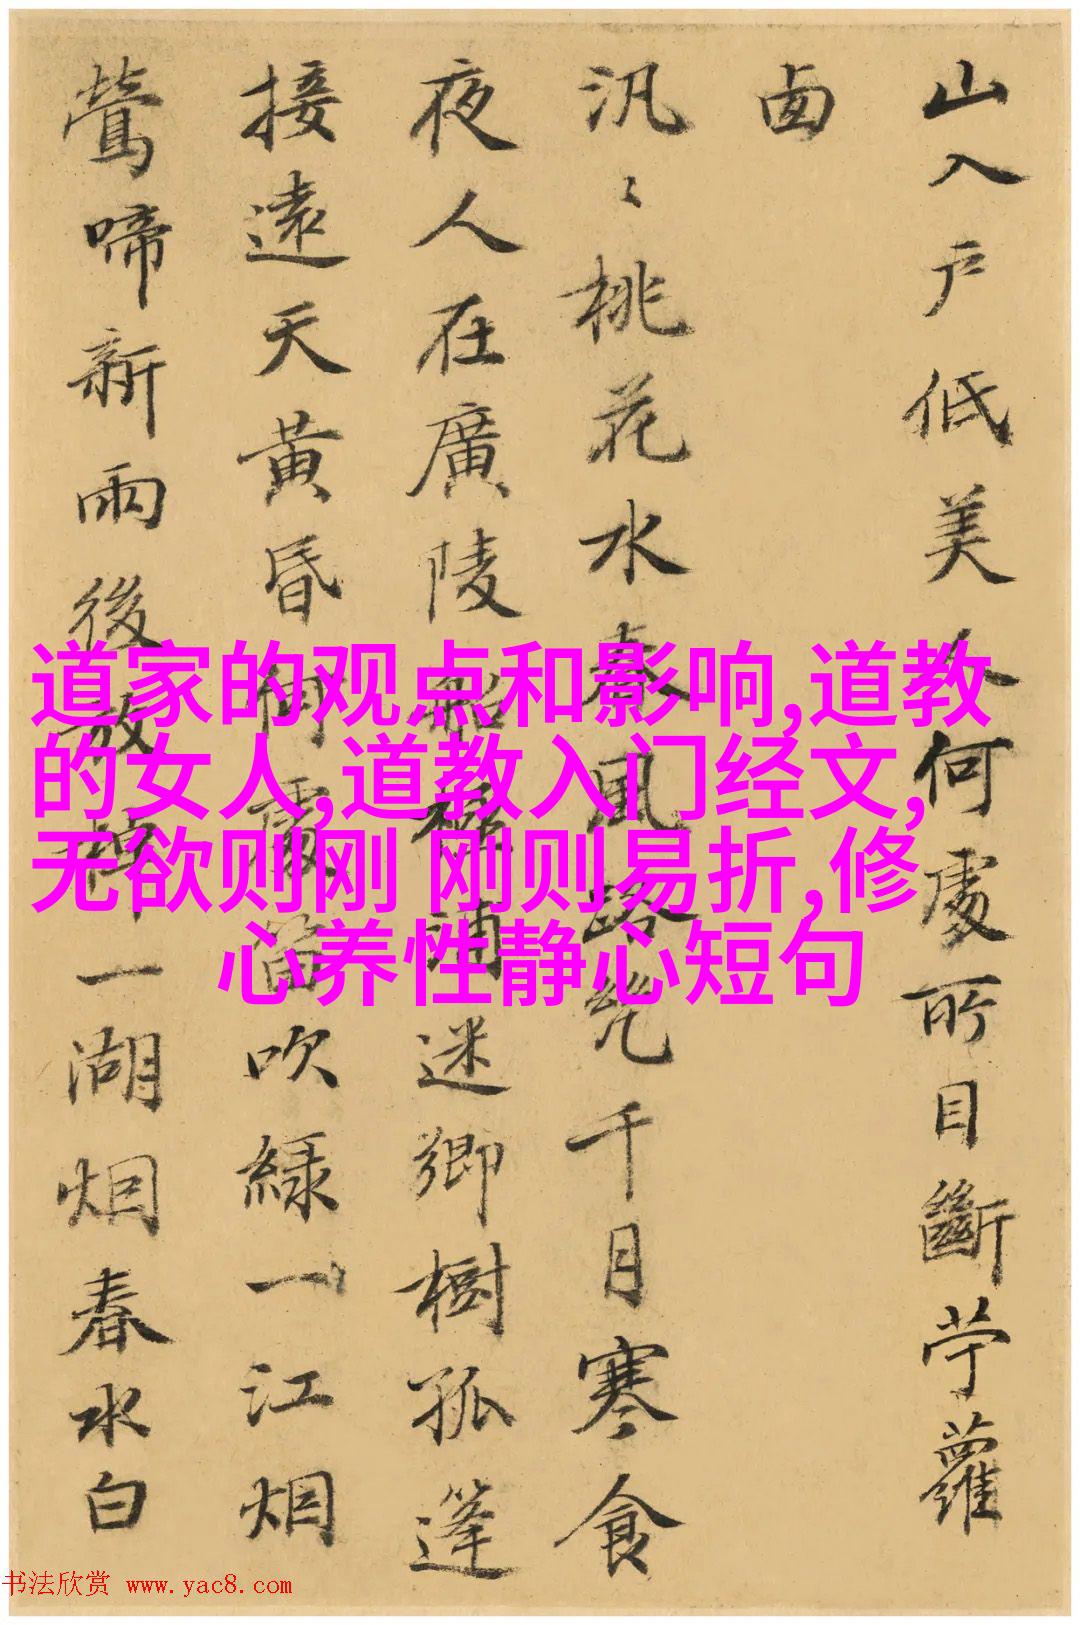 道家的观点和影响,道教
的女人,道教入门经文,
无欲则刚 刚则易折,修
心养性静心短句
山入戶低美人何處所目斷苧蘿
汎〻桃花水春風路幾千月寒食
夜人在廣陵船浦迷鄉樹孤篷
接遠天黃昏何處笛吹綠一江烟
鶯啼新雨後放棹一湖烟春水白
书法欣赏 www.yac8.com